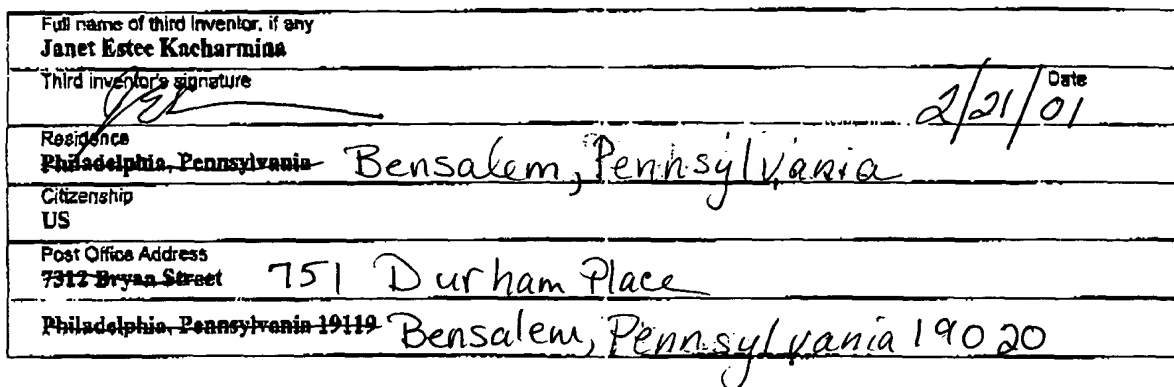 Full name of third Inventor, if any
Janet Estee Kacharmina
Third inventor's signature
Date
2/21/01
Residence
Philadelphia, Pennsylvania Bensalem, Pennsylvania
Citizenship
US
Post Office Address
7312 Bryan Street 751 Durham Place
Philadelphia, Pennsylvania 19119 Bensalem, Pennsylvania 19020